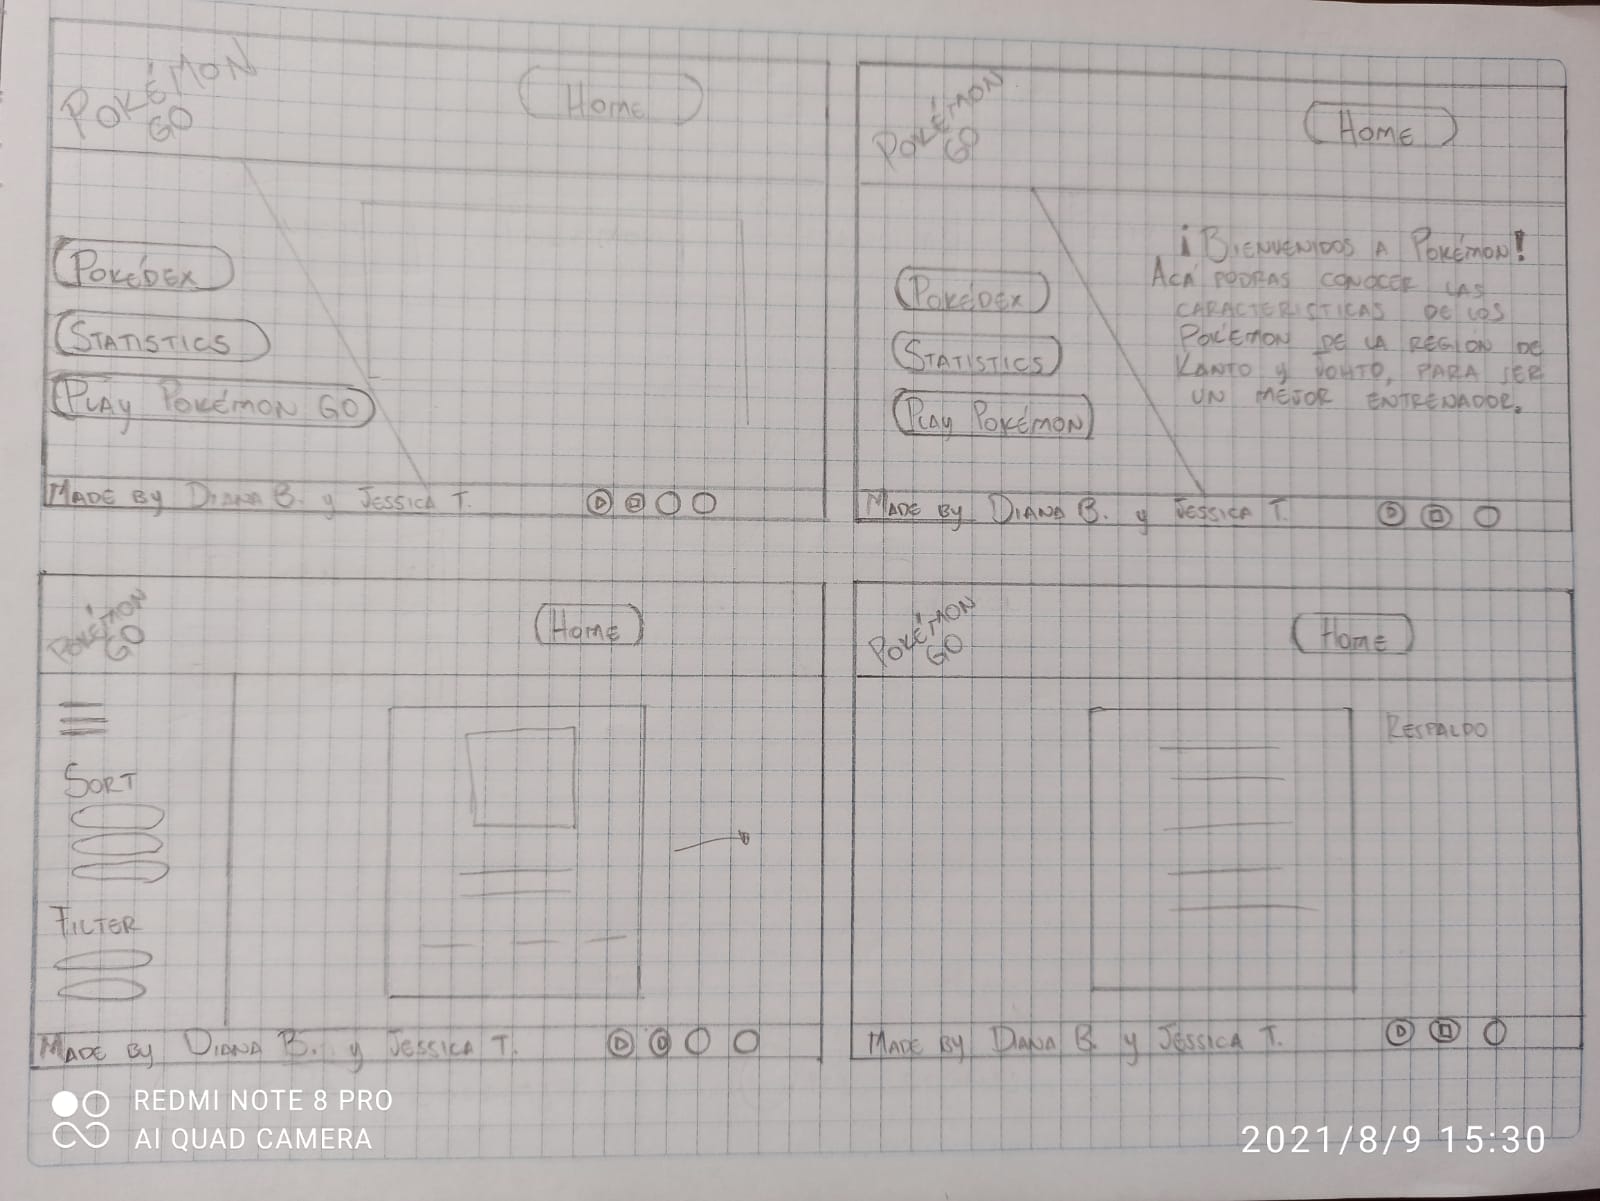 POKÉMON
GO
HOME
POKÉDEX
STATISTICS
PLAY POKÉMON GO
MADE BY DIANA B. y JESSICA T.
POKÉMON
GO
HOME
¡BIENVENIDOS A POKÉMON!
ACÁ PODRAS CONOCER LAS
CARACTERISTICAS DE LOS
POKÉMON DE LA REGIÓN DE
KANTO y JOHTO, PARA SER
UN MEJOR ENTRENADOR.
POKÉDEX
STATISTICS
PLAY POKÉMON
MADE BY DIANA B. y JESSICA T.
POKÉMON
GO
HOME
SORT
FILTER
MADE BY DIANA B. y JESSICA T.
POKÉMON
GO
HOME
RESPALDO
MADE BY DIANA B. y JESSICA T.
REDMI NOTE 8 PRO
AI QUAD CAMERA
2021/8/9 15:30